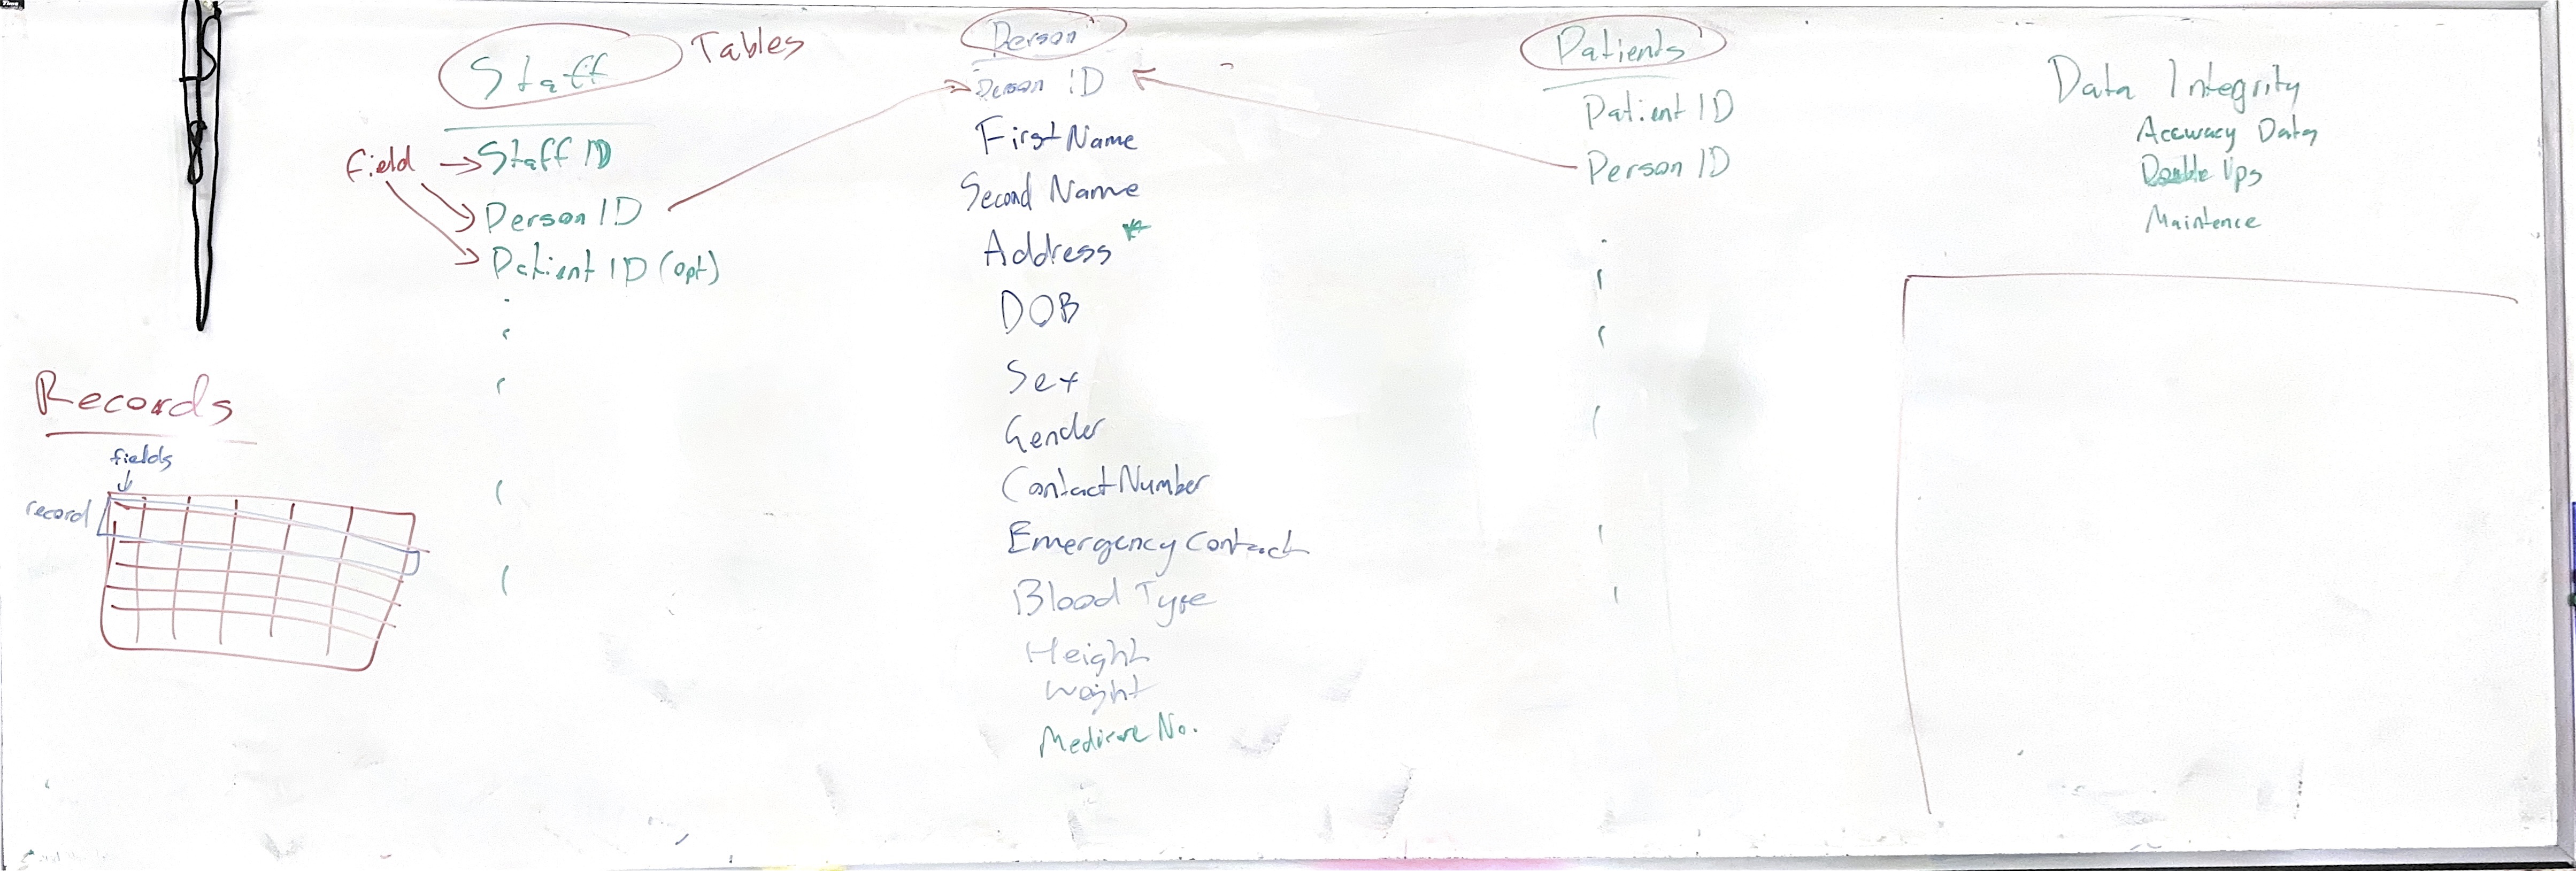 Staff
Tables
field
Staff ID
Person ID
Patient ID (opt)
Records
fields
record
Person
Person ID
First Name
Second Name
Address *
DOB
Sex
Gender
Contact Number
Emergency Contact
Blood Type
Height
Weight
Medicare No.
Patients
Patient ID
Person ID
Data Integrity
Accuracy Data
Double Ups
Maintence